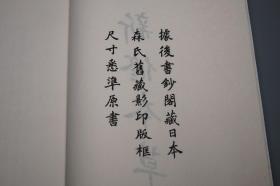 據後書鈔閣藏日本
森氏舊藏影印版框
尺寸悉準原書